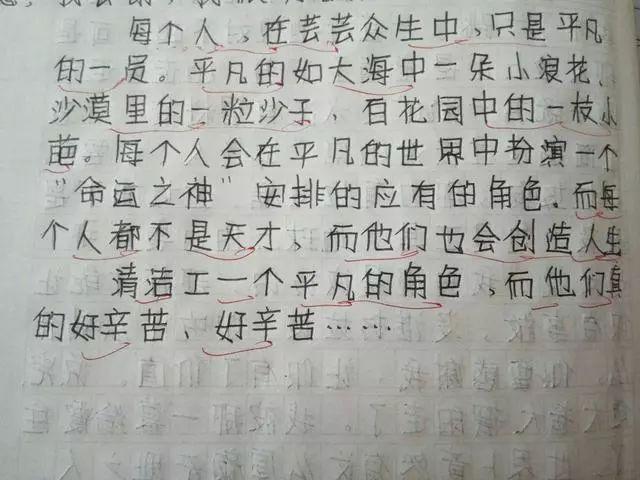 每个人，在芸芸众生中，只是平凡
的一员。平凡的如大海中一朵小浪花、
沙漠里的一粒沙子，百花园中的一枝小
葩。每个人会在平凡的世界中扮演一个
“命运之神”安排的应有的角色.而每
个人都不是天才，而他们也会创造人生
清洁工一个平凡的角色，而他们真
的好辛苦、好辛苦……